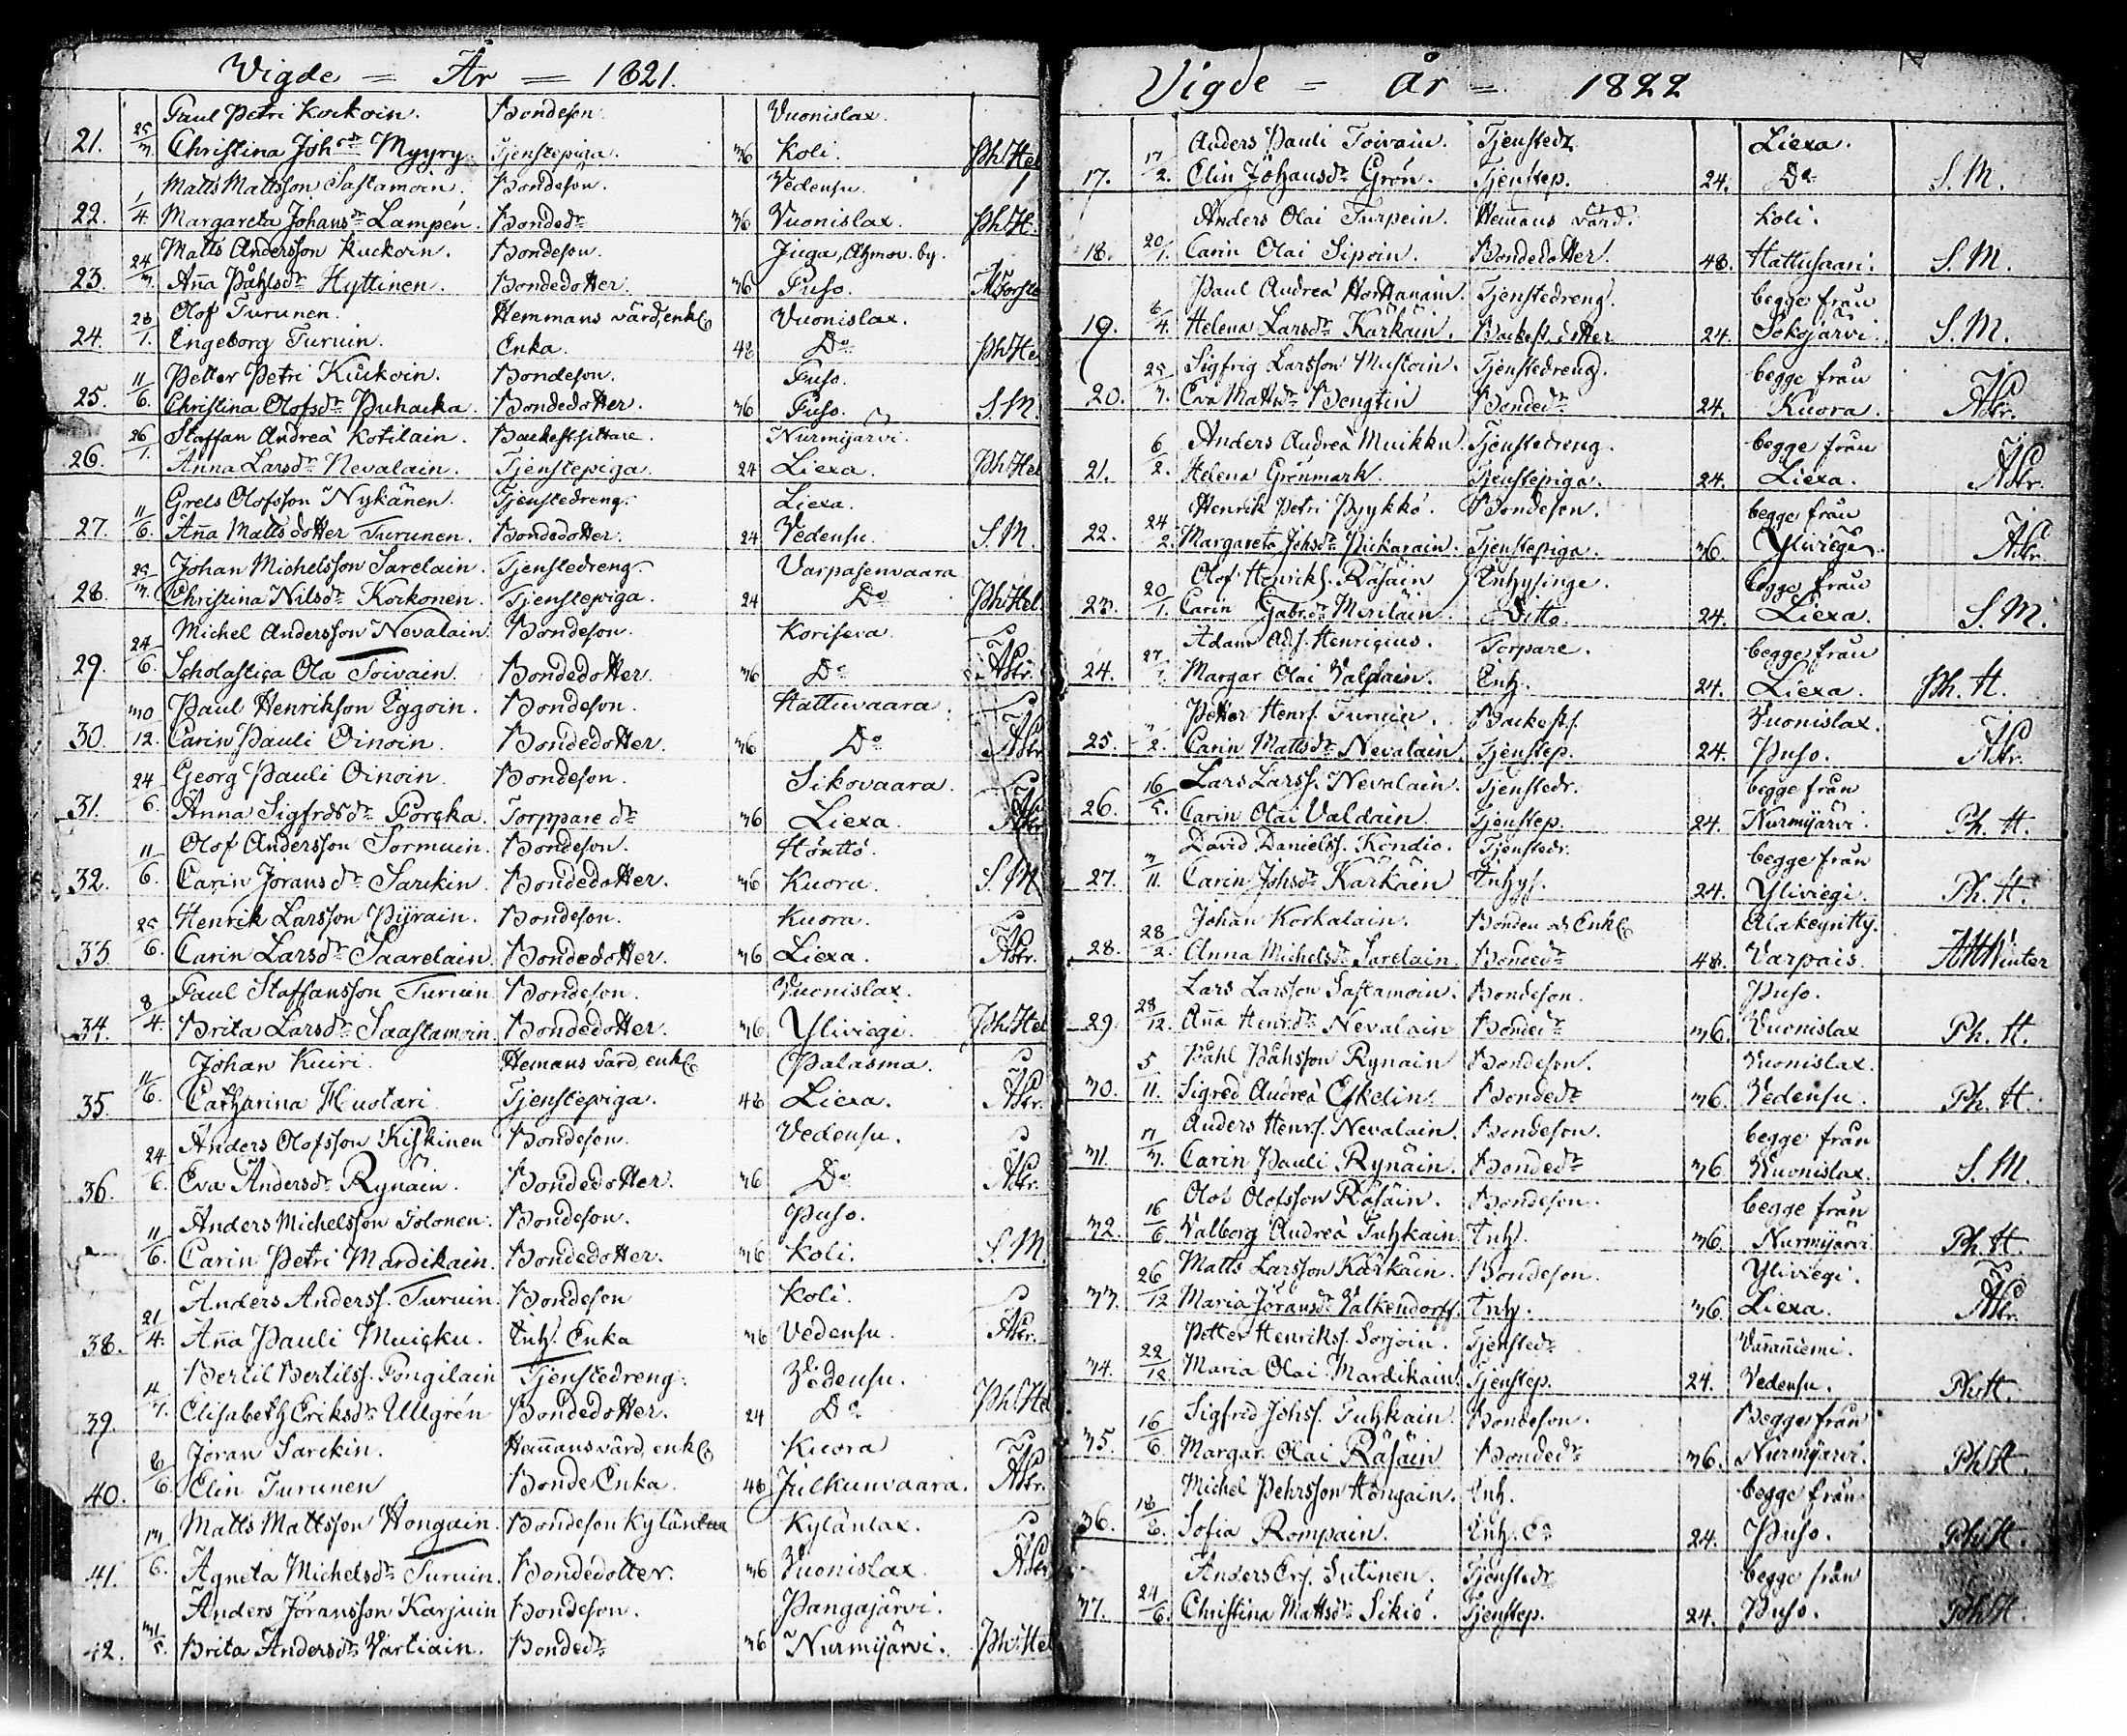 Vigde = År = 1821.
Paul Petri Korkoin. Bondeson. Vuonislax.
21. 25/3. Christina Joh:sdr Myyry. Tjenstepiga. 36 Koli. Ph: Hel
Matts Mattsson Sastamoin. Bondeson. Vedensu.
22. 1/4. Margareta Johansdr Lampén. Bondedr 36 Vuonislax. Ph: H.
Matts Andersson Kuckoin. Bondeson. Juga, Ahmov. by.
23. 24/3. Aña Påhlsdr Hyttinen. Bondedotter. 36 Puso.
Olof Turunen. Hemmans värd, enkl. Vuonislax.
24. 28/1. Engeborg Turuin. Enka. 48 Do Ph: He
Petter Petri Kuckoin. Bondeson. Puso.
25. 11/6. Christina Olofsdr Puhacka. Bondedotter. 36 Puso. S. M.
Staffan Andreæ Kotilain. Backest.sittare. Nurmijärvi.
26. 26/1. Anna Larsdr Nevalain. Tjenstepiga. 24 Liexa. Ph: Hel
Grels Olofsson Nykänen. Tjenstedreng. Liexa.
27. 11/6. Aña Matts dotter Turunen. Bondedotter. 24 Vedensu. S. M.
Johan Michelsson Sarelain. Tjenstedreng. Varpasenvaara
28. 25/3. Christina Nilsdr Korkonen. Tjenstepiga. 24 Do Ph: Hel
Michel Andersson Nevalain. Bondeson. Koriseva.
29. 24/6. Scholastica Ola Toivain. Bondedotter. 36 Do
Paul Henrikson Eggoin. Bondeson. Hattuvaara.
30. 30/12. Carin Pauli Oinoin. Bondedotter. 36 Do
Georg Pauli Oinoin. Bondeson. Sikovaara.
31. 24/6. Anna Sigfridsdr Porcka. Torppare dr 36 Liexa
Olof Andersson Sormuin. Bondeson. Hönttö.
32. 11/6. Carin Joransdr Sarckin. Bondedotter. 36 Kuora. S. M
Henrik Larsson Pyrain. Bondeson. Kuora.
33. 25/6. Carin Larsdr Saarelain. Bondedotter. 36 Liexa.
Paul Staffansson Turuin. Bondeson. Vuonislax.
34. 8/4. Brita Larsdr Saastamoin. Bondedotter. 36 Yliviegi. Ph: Hel
Johan Kuiri. Hemans värd, enkl. Palasma.
35. 11/6. Catharina Huotari. Tjenstepiga. 48 Liexa.
Anders Olofsson Kiskinen Bondeson. Vedensu.
36. 24/6. Eva Andersdr Rynäin. Bondedotter. 36 Do
Anders Michelsson Tolonen. Bondeson. Puso.
11/6. Carin Petri Mardikain. Bondedotter. 36 Koli. S. M.
Anders Anderss. Turuin. Bondeson Koli.
38. 21/4. Aña Pauli Muicku. Inh. Enka 36 Vedensu.
Bertil Bertilss. Pongilain Tjenstedreng. Vedensu.
39. 4/3. Elisabeth Eriksdr Ullgrén Bondedotter. 24 Do Ph: He
Joran Sarckin. Hemans värd, enkl. Kuora
40. 8/6 Elin Turunen Bonde Enka. 48 Julkunvaara.
Matts Mattsson Hongain. Bondeson Kyläntax Kyläntax.
41. 13/6. Agneta Michelsdr Turuin. Bondedotter. 36 Vuonislax.
Anders Joransson Karjuin Bondeson. Pangajärvi.
42. 31/5. Brita Andersdr Vartiain. Bondedr 36 Nurmijärvi. Ph: Hel
Vigde = år = 1822
Anders Pauli Toivain. Tjenstedr Liexa.
17. 17/2. Elin Johansdr Grön. Tjenstep. 24. Do S. M.
Anders Olai Turpein. Hemans värd. Koli.
18. 20/1. Carin Olai Sipoin. Bondedotter. 48. Hattusaari. S. M.
Paul Andreæ Horttanain. Tjenstedreng. begge från
19. 6/4. Helena Larsdr Kärkäin. Backest. dotter 24. Sokojärvi. S. M.
Sigfrig Larsson Mustoin. Tjenstedreng. begge från
20. 25/3. Eva Mattsdr Bengtin Bondedr 24. Kuora.
Anders Andreæ Muikku. Tjenstedreng. begge från
21. 6/2. Helena Grönmark. Tjenstepiga. 24. Liexa.
Henrik Petri Pyykkö. Bondeson. begge från
22. 24/2. Margareta Johsdr Pickarain. Tjenstepiga. 36. Yliviegi.
Olof Henriks. Räsäin Inhysinge. begge från
23. 20/1. Carin Gabr.dr Meriläin. Ditto. 24. Liexa. S. M.
Adam Ads. Henricius. Torpare. begge från
24. 27/1. Margar. Olai Valdain. Enh. 24. Liexa. Ph. H.
Petter Henrs. Turuin. Backest. Vuonislax.
25. 3/2. Carin Mattsdr Nevalain. Tjenstep. 24. Puso.
Lars Larss. Nevalain. Tjenstedr. begge från
26. 16/5. Carin Olai Valdain. Tjenstep. 24. Nurmijärvi. Ph. H.
David Danielss. Kondio. Tjenstedr. begge från
27. 3/11. Carin Johsdr Kärkäin Inhys. 24. Yliviegi. Ph. H.
Johan Korkalain. Bonden och Enkl. Alakeyritty.
28. 28/2. Anna Michelsdr Sarelain. Bondedr 48. Varpais. Winter
Lars Larsson Sastamoin. Bondeson. Puso.
29. 28/12. Aña Henr.dr Nevalain Bondedr 36. Vuonislax Ph. H.
Påhl Påhlsson Rynäin Bondeson. Vuonislax.
30. 5/11. Sigred Andreæ Eskelin. Bondedr 36. Vedensu. Ph. H.
Anders Henrs. Nevalain. Bondeson. begge från
31. 17/3. Carin Pauli Rynäin. Bondedr 36. Vuonislax. S. M.
Olof Olofsson Räsäin. Bondeson. begge från
32. 16/6. Valborg Andreæ Tuhkain. Inh. 36. Nurmijärvi. Ph. H.
Matts Larsson Kärkäin. Bondeson. Yliviegi.
33. 26/12. Maria Joransdr Valkendorff. Inh. 36. Liexa.
Petter Henrikss. Sorjoin. Tjenstedr Vañañiemi.
34. 22/12. Maria Olai Mardikain. Tjenstep. 24. Vedensu. Ph. H.
Sigfred Johss. Tuhkain. Bondeson. Begge från
35. 16/6. Margar. Olai Räsäin Bondedr 36. Nurmijärvi. Ph. H.
Michel Pehrsson Hongain. Enh. begge från
36. 18/8. Sofia Rompain. Enh. Ea 24. Puso. Ph. H.
Anders Ers. Sutinen. Tjenstedr begge från
37. 24/6. Christina Mattsdr Sikiö. Tjenstep. 24. Puso. Ph H